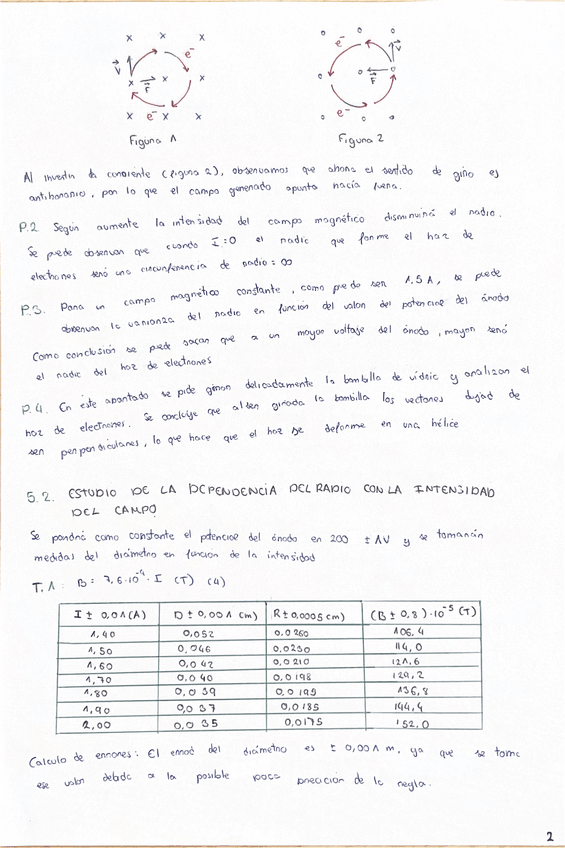 x x x
e⁻
V⃗
x F⃗ x x
x e⁻ x x
Figura 1
o o o
e⁻
V⃗
o o F⃗ o
e⁻
o o o
Figura 2
Al invertir la corriente (figura 2), observamos que ahora el sentido de giro es
antihorario, por lo que el campo generado apunta hacía fuera.
P.2 Según aumente la intensidad del campo magnético disminuirá el radio.
Se puede observar que cuando I=0 el radio que forme el haz de
electrones será una circunferencia de radio = ∞
P.3. Para un campo magnético constante, como puede ser 1,5 A, se puede
observar la varianza del radio en función del valor del potencial del ánodo
Como conclusión se puede sacar que a un mayor voltaje del ánodo, mayor será
el radio del haz de electrones
P.4. En este apartado se pide girar delicadamente la bombilla de vidrio y analizar el
haz de electrones. Se concluye que al ser girada la bombilla los vectores dejad de
ser perpendiculares, lo que hace que el haz se deforme en una hélice
5.2. ESTUDIO DE LA DEPENDENCIA DEL RADIO CON LA INTENSIDAD
DEL CAMPO
Se pondrá como constante el potencial del ánodo en 200 ± 1V y se tomarán
medidas del diámetro en función de la intensidad
T.1: B = 7,6·10⁻⁴· I (T) (4)
I ± 0,01(A) D ± 0,001 (m) R ± 0,0005 (m) (B ± 0,8)·10⁻⁵ (T)
1,40 0,052 0,0260 106,4
1,50 0,046 0,0230 114,0
1,60 0,042 0,0210 121,6
1,70 0,040 0,0198 129,2
1,80 0,039 0,0195 136,8
1,90 0,037 0,0185 144,4
2,00 0,035 0,0175 152,0
Calculo de errores: El error del diámetro es ± 0,001 m, ya que se toma
ese valor debido a la posible poca precisión de la regla.
2